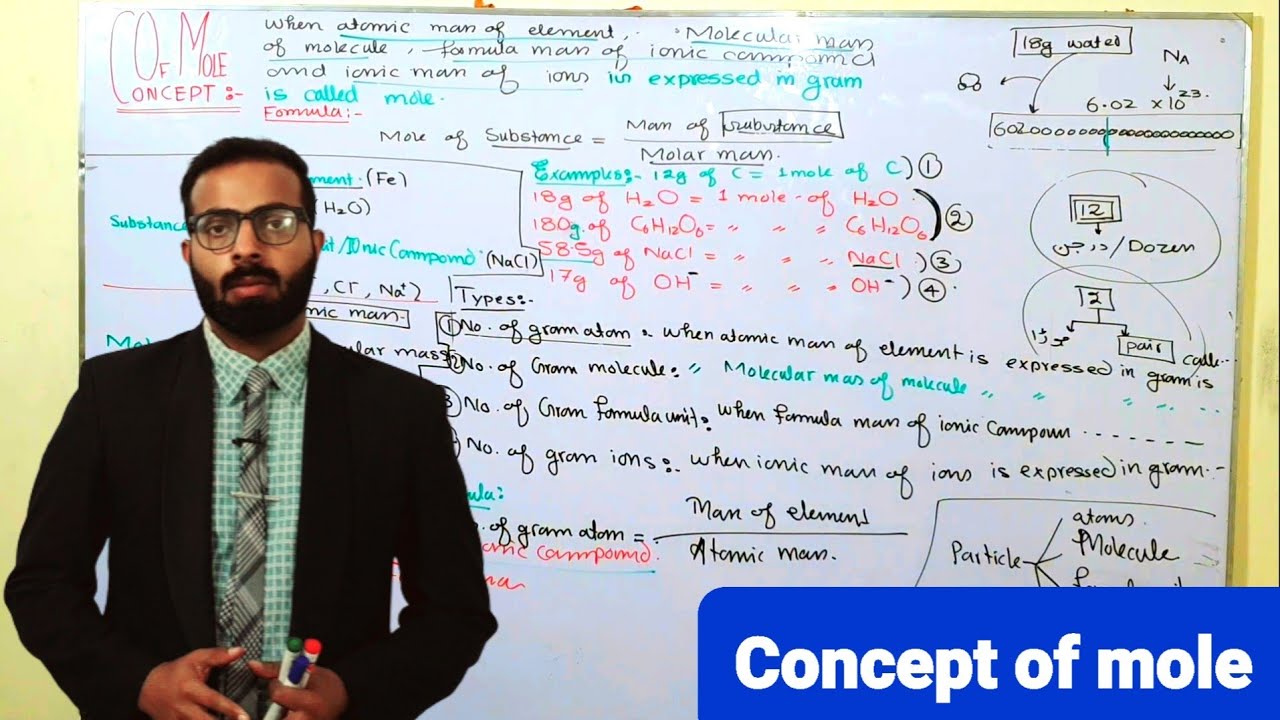 CONCEPT OF MOLE :-
when atomic man of element, Molecular man
of molecule, formula man of ionic campound
and ionic man of ions is expressed in gram
is called mole.
Formula:-
Mole of Substance = Man of Substance
Molar man.
18g water
NA
6.02 ×10 23.
ement. (Fe)
(H2O)
Substance
/Ionic Campound. (NaCl)
, Cl-, Na+)
nic man.
Examples:- 12g of C = 1 mole of C) ①
18g of H2O = 1 mole of H2O
180g of C6H12O6 = " " " C6H12O6) ②
58.5g of NaCl = " " " NaCl.) ③
17g of OH- = " " " OH-) ④
12
درجن/Dozen
2
جوڑا
pair
Types:-
ular mass
① No. of gram atom : when atomic man of element is expressed in gram is calle...
② No. of Gram molecule: " Molecular mas of molecule " " " " ..
③ No. of Gram formula unit: when formula man of ionic Campoun -------
No. of gram ions:- when ionic man of ions is expressed in gram.-
ula:
. of gram atom = Man of element
Atomic man.
campound.
Particle
atoms.
Molecule
Concept of mole